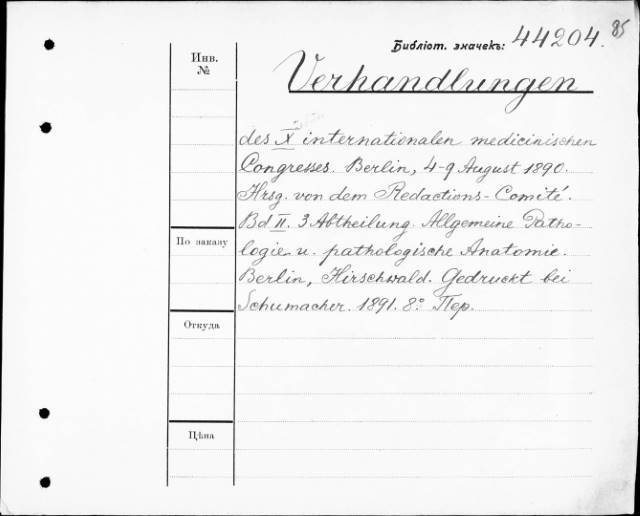 85
Библіот. значекъ: 44204.
Инв.
№
Verhandlungen
des X internationalen medicinischen
Congresses. Berlin, 4-9 August 1890.
Hrsg. von dem Redactions-Comité.
Bd II. 3 Abtheilung. Allgemeine Patho-
По заказу
logie u. pathologische Anatomie.
Berlin, Hirschwald. Gedruckt bei
Schumacher. 1891. 8° Пер.
Откуда
Цѣна